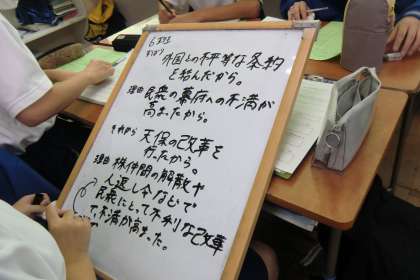 6班
外国との不平等な条約
を結んだから。
理由 民衆の幕府への不満が
高まったから。
それから 天保の改革を
行ったから。
理由 株仲間の解散や
人返し令などで
民衆にとって不利な改革
で不満が高まった。